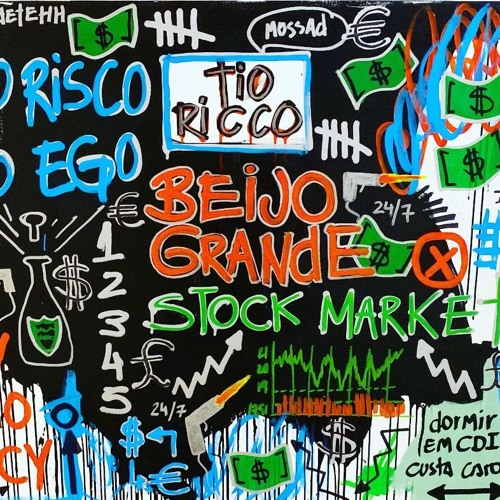 MOSSAd €
$
TIO
RICCO
O RISCO
O EGO
$
[$]
[$]
BEIJO
GRANdE
24/7
€
$
1
2
3
4
5
X
STOCK MARKET
£
24/7
$
€
[$]
$
£
O
CY
dormir
EM CDI
custa caro